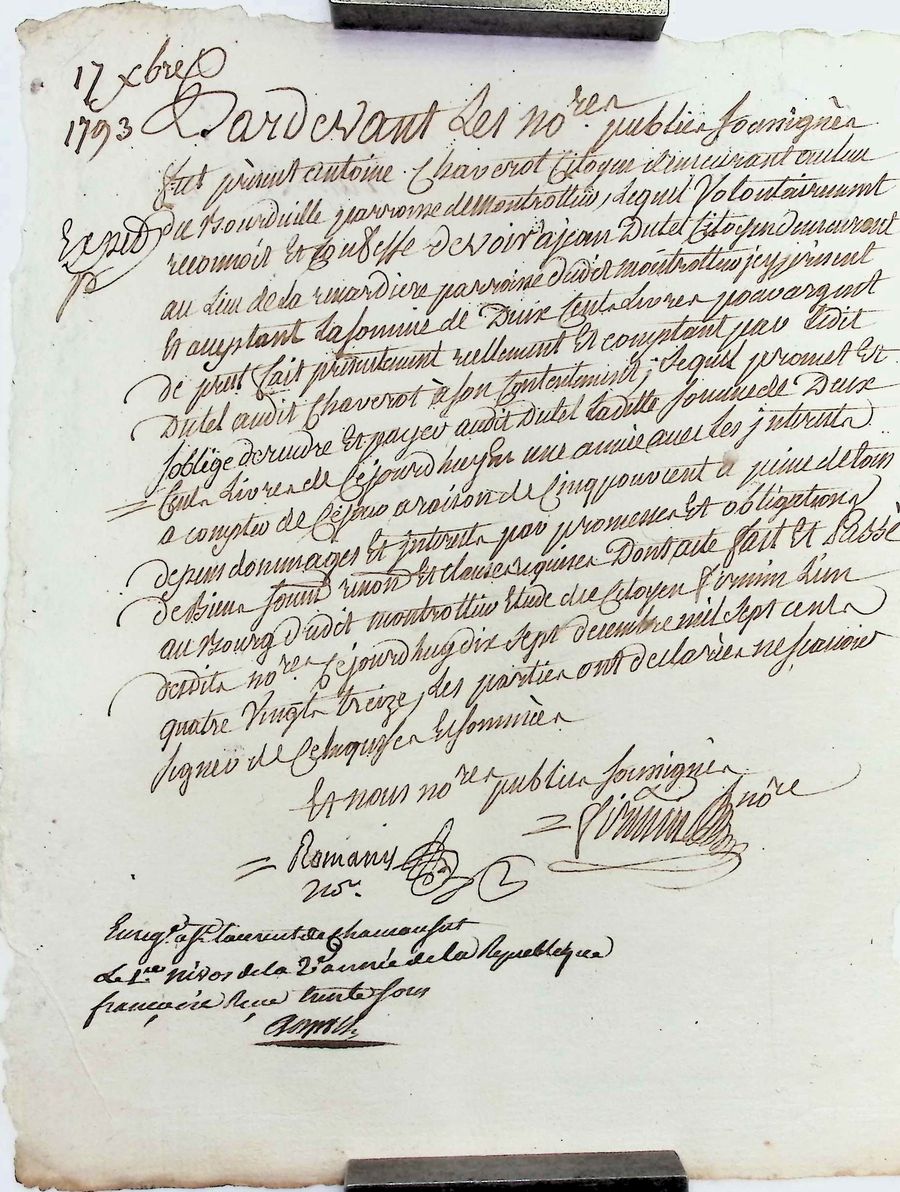 17 xbre
1793
Pardevant Les no.res publics soussignès
fut présent antoine Chaverot Citoyen demeurant au lieu
Expéd
du Bourdville parroisse de montrottier, Lequel Volontairement
reconnoit Et Confesse devoir a jean Dutel Citoyen demeurant
au Lieu de La renardiere parroisse dudit montrottier jcy présent
Et acceptant La somme de Deux Cents Livres pour argent
de pret fait présentement réellement Et comptant par Ledit
Dutel audit Chaverot à son Contentement ; Lequel promet Et
s'oblige de rendre Et payer audit Dutel Ladite somme de Deux
Cents Livres de Céjourd'huy En une année avec Les jnterets
a compter de Céjour a raison de Cinq pour cent a peine de tous
depens dommages Et jnterets par promesses Et obligations
de Biens soumis. renon. Et clauses requises Dont acte fait Et Passé
au Bourg dudit montrottier Etude du Citoyen firmin L'un
desdits no.res Céjourd'huy dix sept decembre mil sept cents
quatre Vingts treize, Les parties ont declarées ne sçavoir
signer de Ce Enquises Et sommées
Et nous no.res publics soussignès
= firmin no.re
= Romany
nore.
Enregt. a St. laurent de Chamousset
Le 1er nivos de la 2e. année de la Republicque
françoise Reçu trente sous